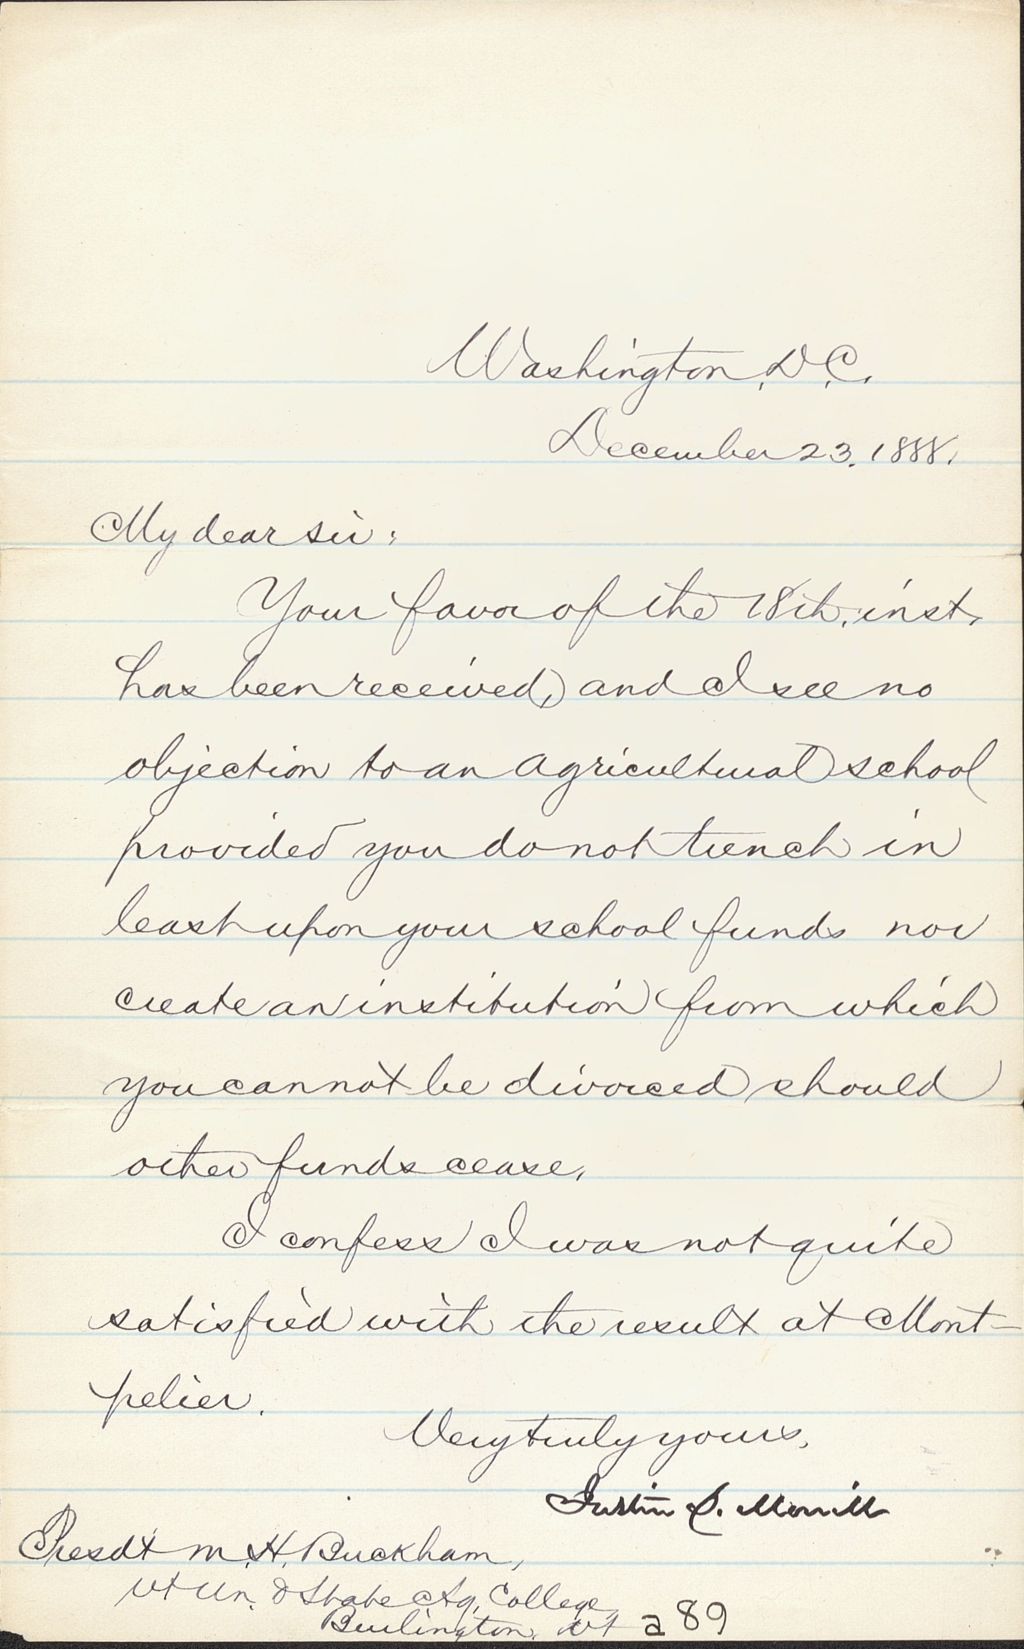 Washington, D.C.
December 23. 1888.
My dear sir:
Your favor of the 18th. inst.
has been received, and I see no
objection to an agricultural school
provided you do not trench in
least upon your school funds nor
create an institution from which
you cannot be divorced should
other funds cease.
I confess I was not quite
satisfied with the result at Mont-
pelier.
Very truly yours,
Justin S. Morrill
Presdt M. H. Buckham,
Vt Un. & State Ag. College,
Burlington, Vt a 89